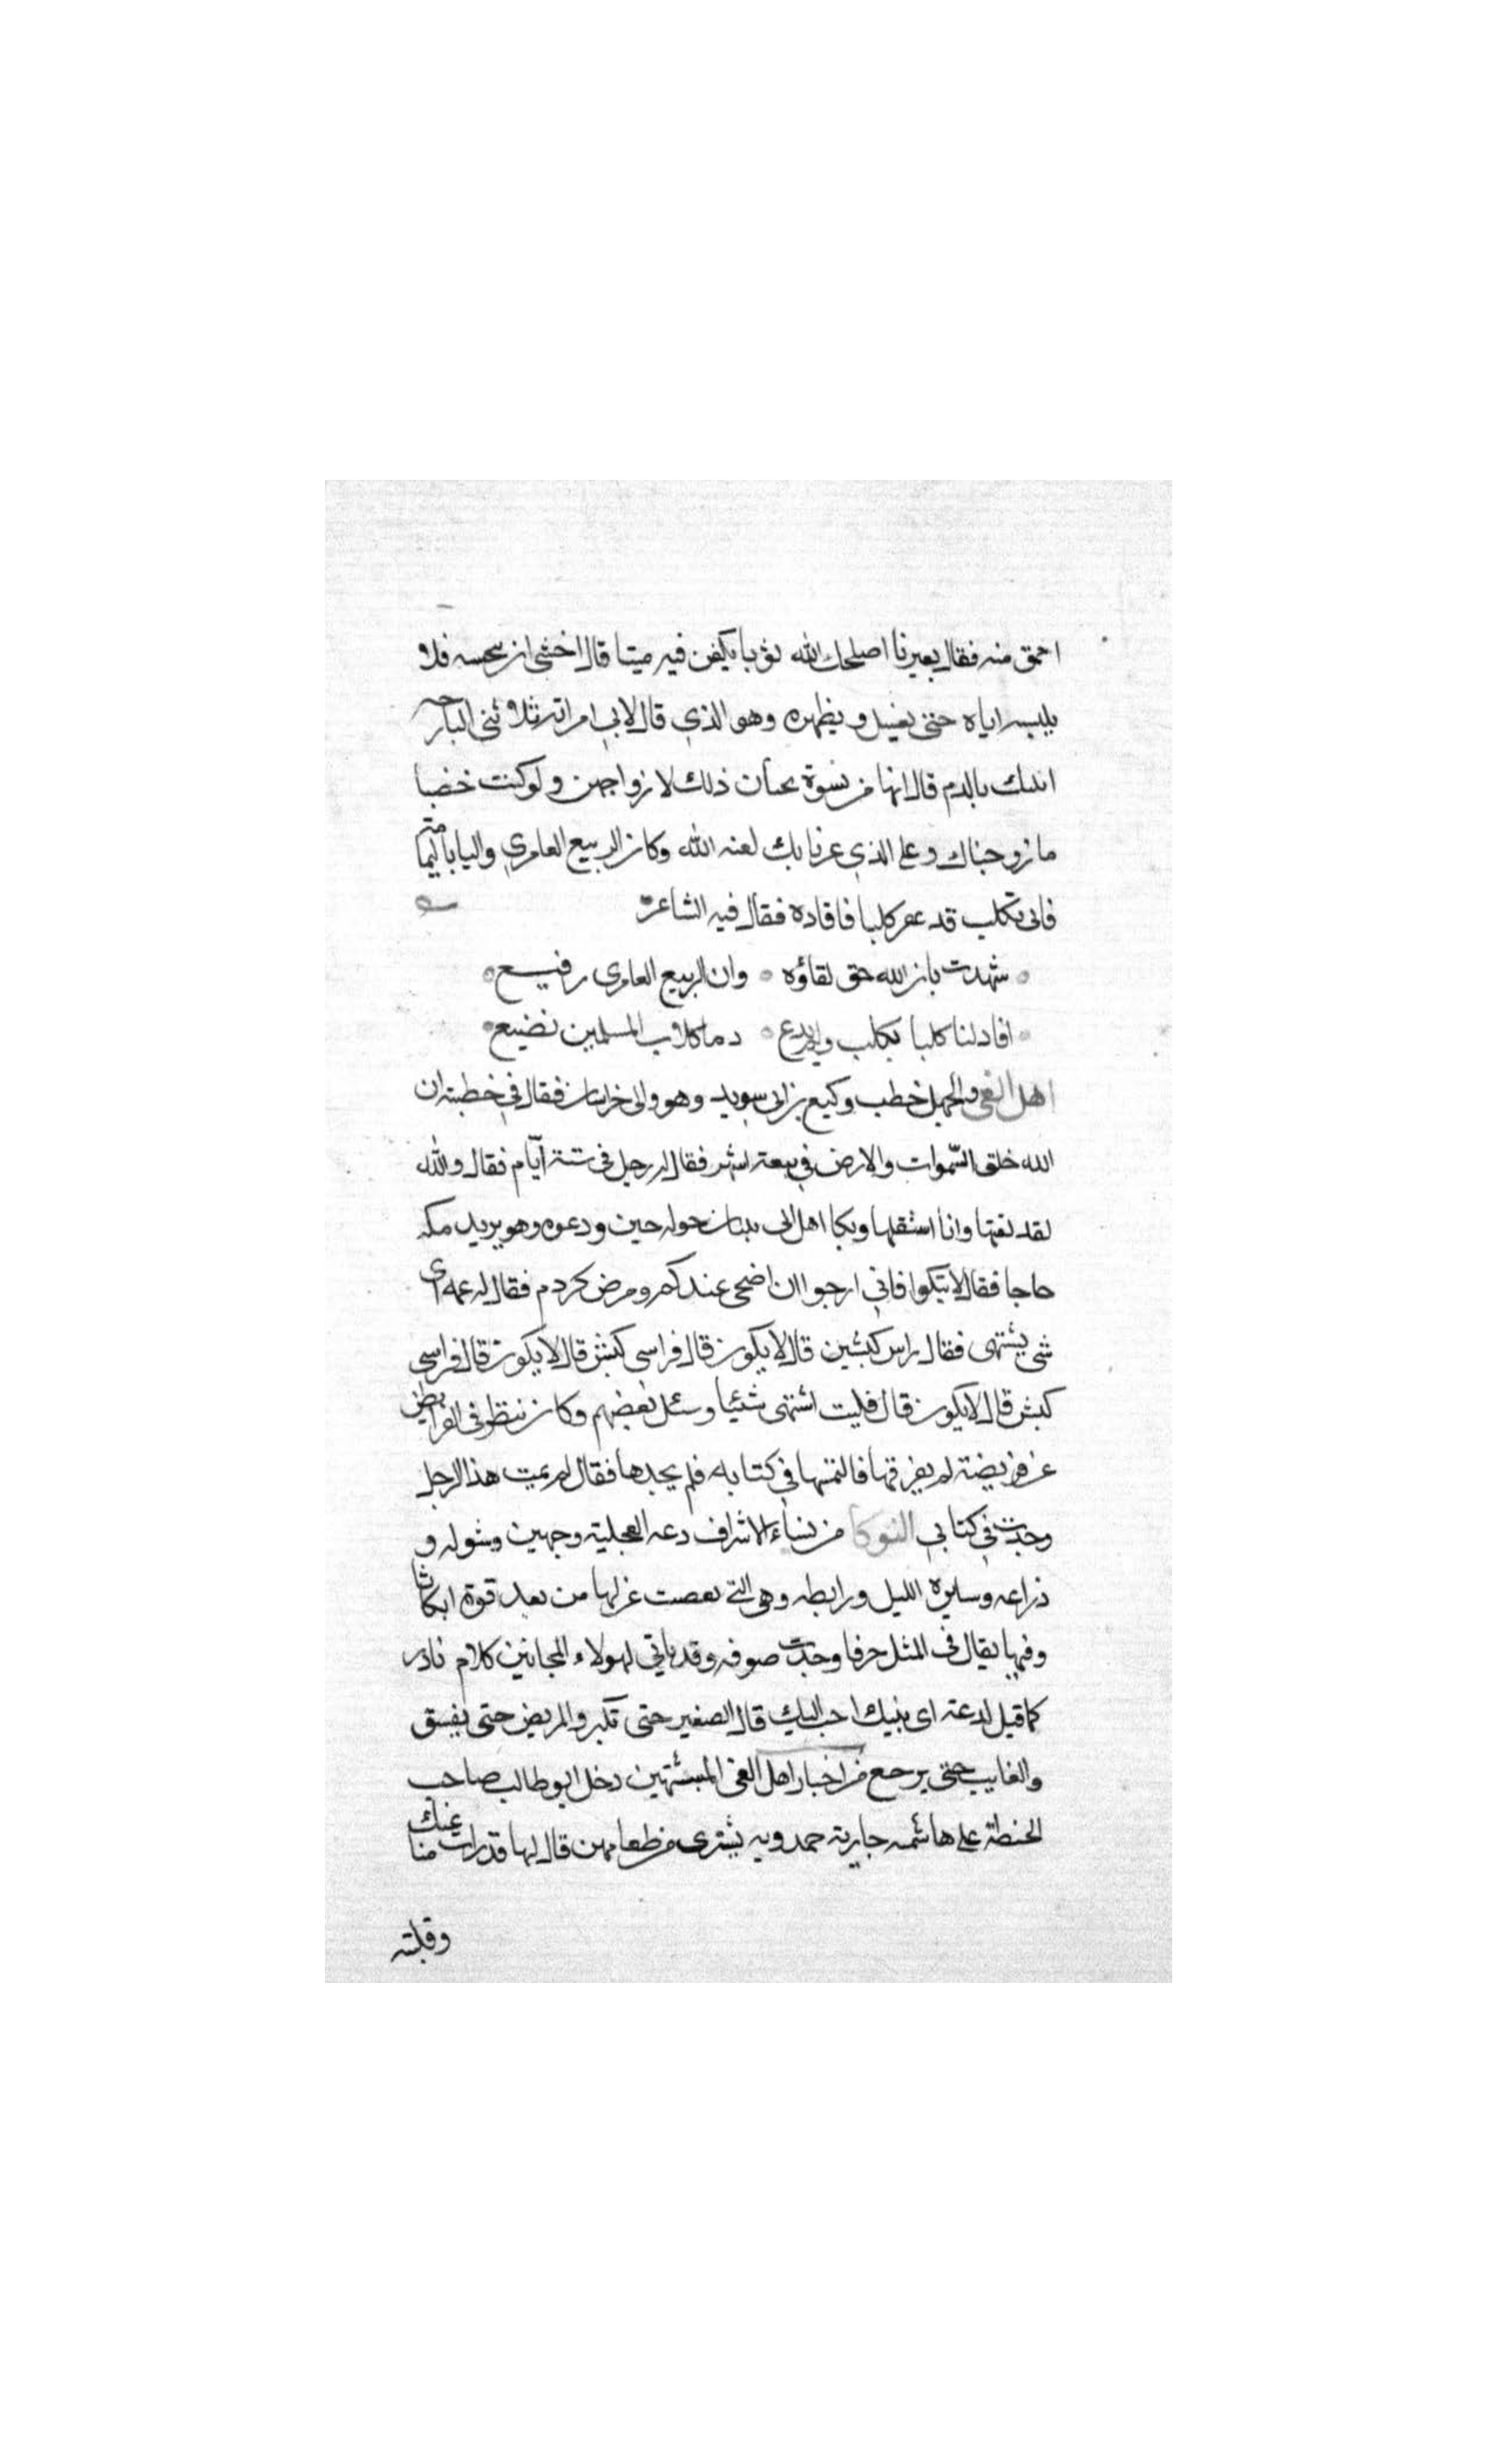 احمق منه فقال يعيرنا اصلحك الله ثوبا يكفن فيه ميتا قال اخشى ان ينجسه فلا
يلبسه اياه حتى يغسل ويطهره وهو الذي قال لابي امراته ثلاثتني البارحه
ابنتك بالدم قال انها من نسوة يخبان ذلك لازواجهن ولو كنت خصيا
ما زوجناك وعلى الذي غرنا بك لعنه الله وكان الربيع العامري واليا باليمامه
فاتى بكلب قد عقر كلبا فاقاده فقال فيه الشاعر
شهدت بان الله حق لقاؤه وان الربيع العامري رفيع
اقاد لنا كلبا بكلب ولم يدع دما كلاب المسلمين تضيع
اهل العي والجهل خطب وكيع بن ابي سويد وهو والى خراسان فقال في خطبته ان
الله خلق السموات والارض في سبعة اشهر فقال له رجل في ستة ايّام فقال والله
لقد قلتها وانا استقلها وبكا اهل ابي حوله حين ودعوه وهو يريد مكه
حاجا فقال لا تبكوا فاني ارجوا ان اضحى عندكم ومرض كردم فقال له عمه اي
شى يشتهى فقال راس كبشين قال لا يكون قال فراسي كبش قال لا يكون قال فراسي
كبش قال لا يكون قال فليت اشتهى شيئا وسئل بعضهم وكان ينظر في الفرايض
عن فريضة لم يعرفها فالتمسها في كتابه فلم يجدها فقال لم يمت هذا الرجل
وجدت في كتابي النوكا من نساء الاشراف دعه العجلية وجهين وشوله و
ذراعه وساره الليل ورابطه وهي التي نقصت غزلها من بعد قوة انكاثا
وفيها يقال في المثل خرقا وجدت صوفه وقد ياتي لهولاء المجانين كلام نادر
كما قيل لدعته اى بنيك احب اليك قال الصغير حتى تكبر والمريض حتى يفيق
والغايب حتى يرجع من اخبار اهل العي المشتهين دخل ابو طالب صاحب
الحنطة على هاشمه جارية حمدويه يشتري من طعامهن قال لها قد رايت متاعك
وقلبته